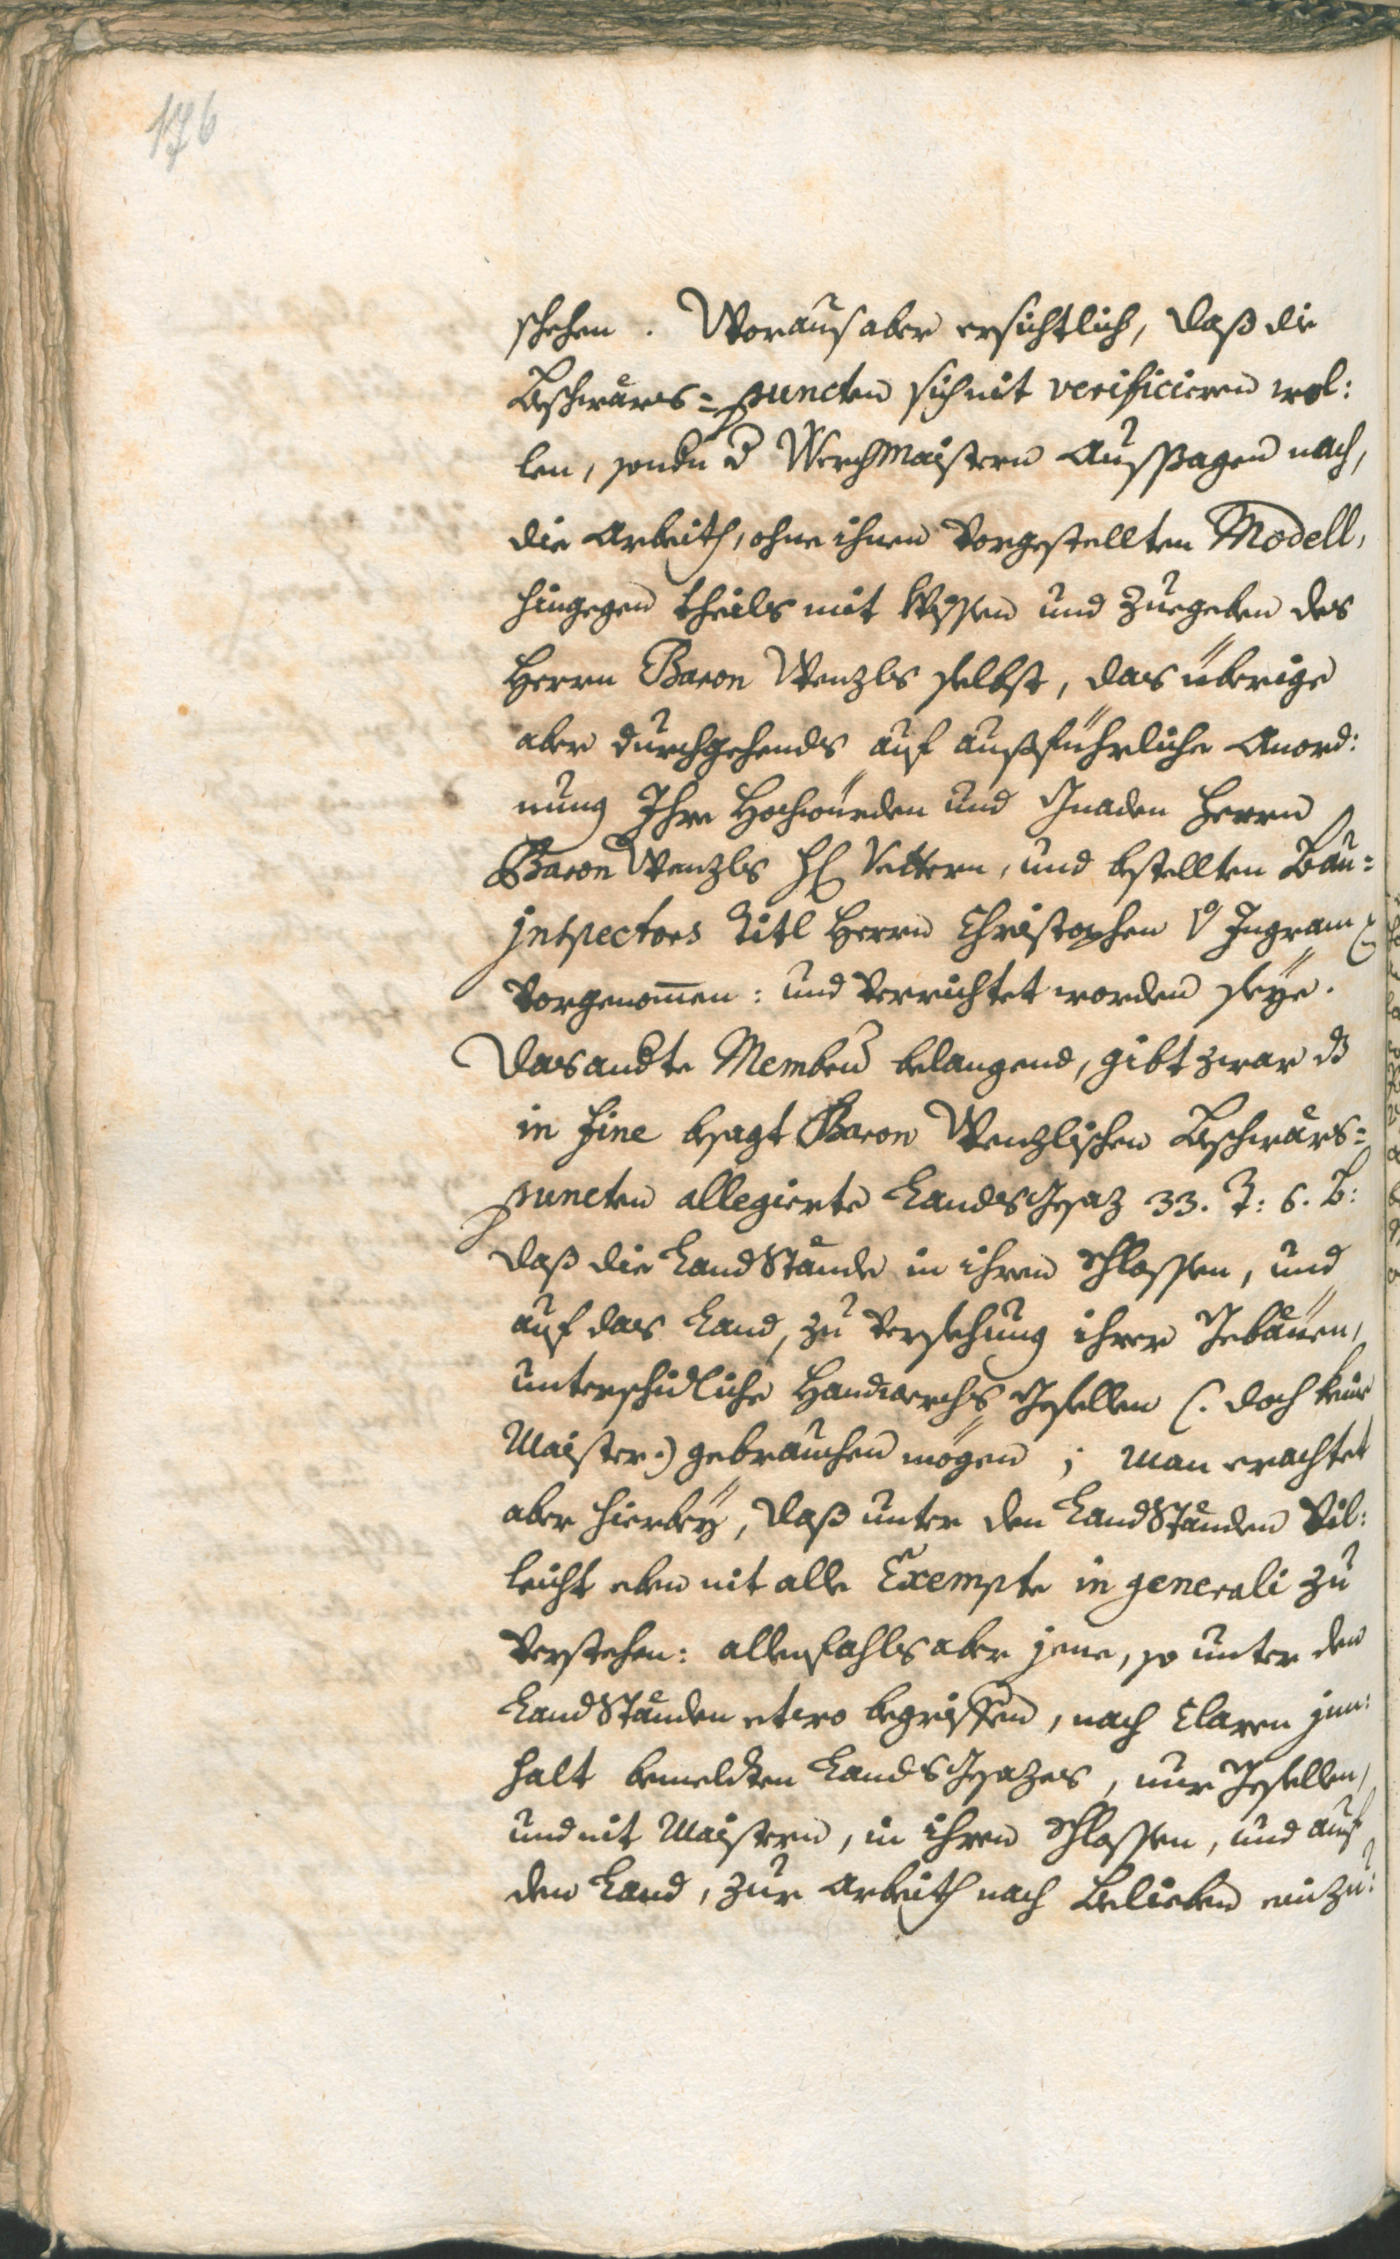 176
schehen. Woraus aber ersichtlich, daß die
Beschwärs=puncten sich nit verificieren wol:
len, sondn d Werchmaistern Aussßagen nach,
die Arbeith, ohne ihnen vorgestellten Modell,
hingegen theils mit Wissen und zuegeben des
Herrn Baron Wenzls selbst, das überige
aber durchgehends auf außführliche Anord:
nung Ihre Hochwürden und Gnaden Herrn
Baron Wenzls H Vettern, und bestellten Bau=
jnspectors titl Herrn Christophen v Ingram
vorgenom̄en: und verrichtet worden seÿe.
Das andte Membru belangend, gibt zwar dz
in fine besagt Baron Wenzlischen Beschwärs=
puncten allegierte LandsGesaz 33. T: 6. B:
daß die LandStände in ihren Schlossen, und
auf das Land, zu versehung ihrer Gebäüen,
unterschidliche Handwerchs Gesellen (: doch keine
Maister:) gebrauchen mögen; man erachtet
aber hierbeÿ, daß unter den LandStänden vil:
leicht eben nit alle Exempte in generali zu
verstehen: allenfahls aber jene, so unter den
LandStänden etwo begriffen, nach Claren jnn:
halt bemeldten LandsGesazes, nur Gesellen,
und nit Maistern, in ihren Schlossen, und auf
den Land, zur Arbeith nach Belieben einzu: